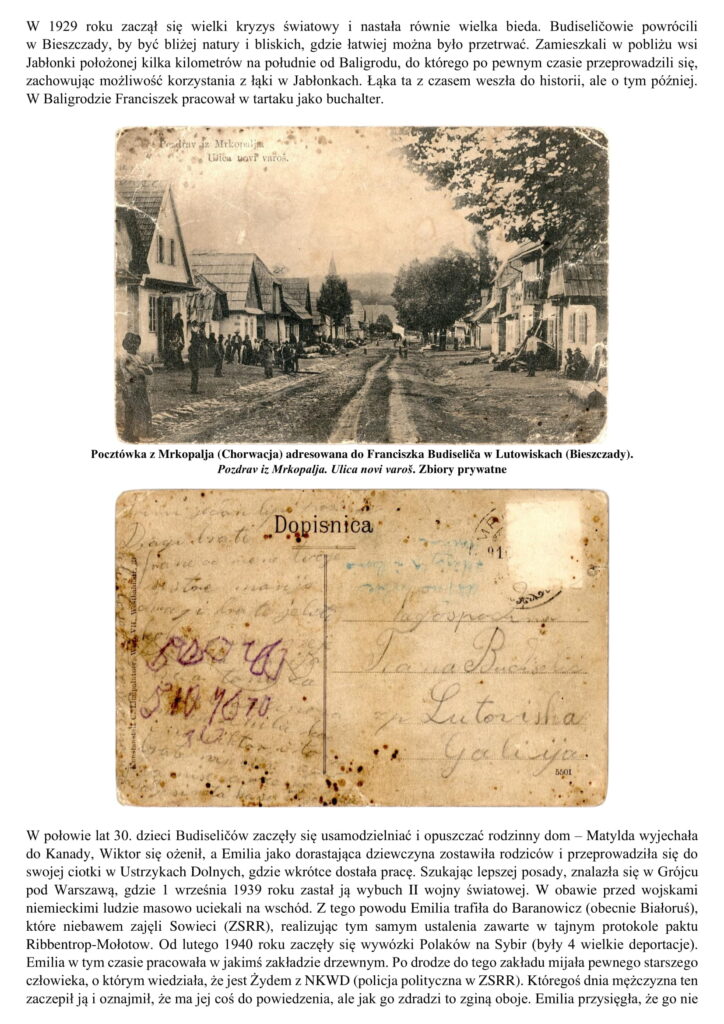 W 1929 roku zaczął się wielki kryzys światowy i nastała równie wielka bieda. Budiseličowie powrócili
w Bieszczady, by być bliżej natury i bliskich, gdzie łatwiej można było przetrwać. Zamieszkali w pobliżu wsi
Jabłonki położonej kilka kilometrów na południe od Baligrodu, do którego po pewnym czasie przeprowadzili się,
zachowując możliwość korzystania z łąki w Jabłonkach. Łąka ta z czasem weszła do historii, ale o tym później.
W Baligrodzie Franciszek pracował w tartaku jako buchalter.
Pozdrav iz Mrkopalja
Ulica novi varoš.
Pocztówka z Mrkopalja (Chorwacja) adresowana do Franciszka Budiseliča w Lutowiskach (Bieszczady).
Pozdrav iz Mrkopalja. Ulica novi varoš. Zbiory prywatne
Dopisnica
91
Frana
Lutoviska
Galicija
5501
W połowie lat 30. dzieci Budiseličów zaczęły się usamodzielniać i opuszczać rodzinny dom – Matylda wyjechała
do Kanady, Wiktor się ożenił, a Emilia jako dorastająca dziewczyna zostawiła rodziców i przeprowadziła się do
swojej ciotki w Ustrzykach Dolnych, gdzie wkrótce dostała pracę. Szukając lepszej posady, znalazła się w Grójcu
pod Warszawą, gdzie 1 września 1939 roku zastał ją wybuch II wojny światowej. W obawie przed wojskami
niemieckimi ludzie masowo uciekali na wschód. Z tego powodu Emilia trafiła do Baranowicz (obecnie Białoruś),
które niebawem zajęli Sowieci (ZSRR), realizując tym samym ustalenia zawarte w tajnym protokole paktu
Ribbentrop-Mołotow. Od lutego 1940 roku zaczęły się wywózki Polaków na Sybir (były 4 wielkie deportacje).
Emilia w tym czasie pracowała w jakimś zakładzie drzewnym. Po drodze do tego zakładu mijała pewnego starszego
człowieka, o którym wiedziała, że jest Żydem z NKWD (policja polityczna w ZSRR). Któregoś dnia mężczyzna ten
zaczepił ją i oznajmił, że ma jej coś do powiedzenia, ale jak go zdradzi to zginą oboje. Emilia przysięgła, że go nie